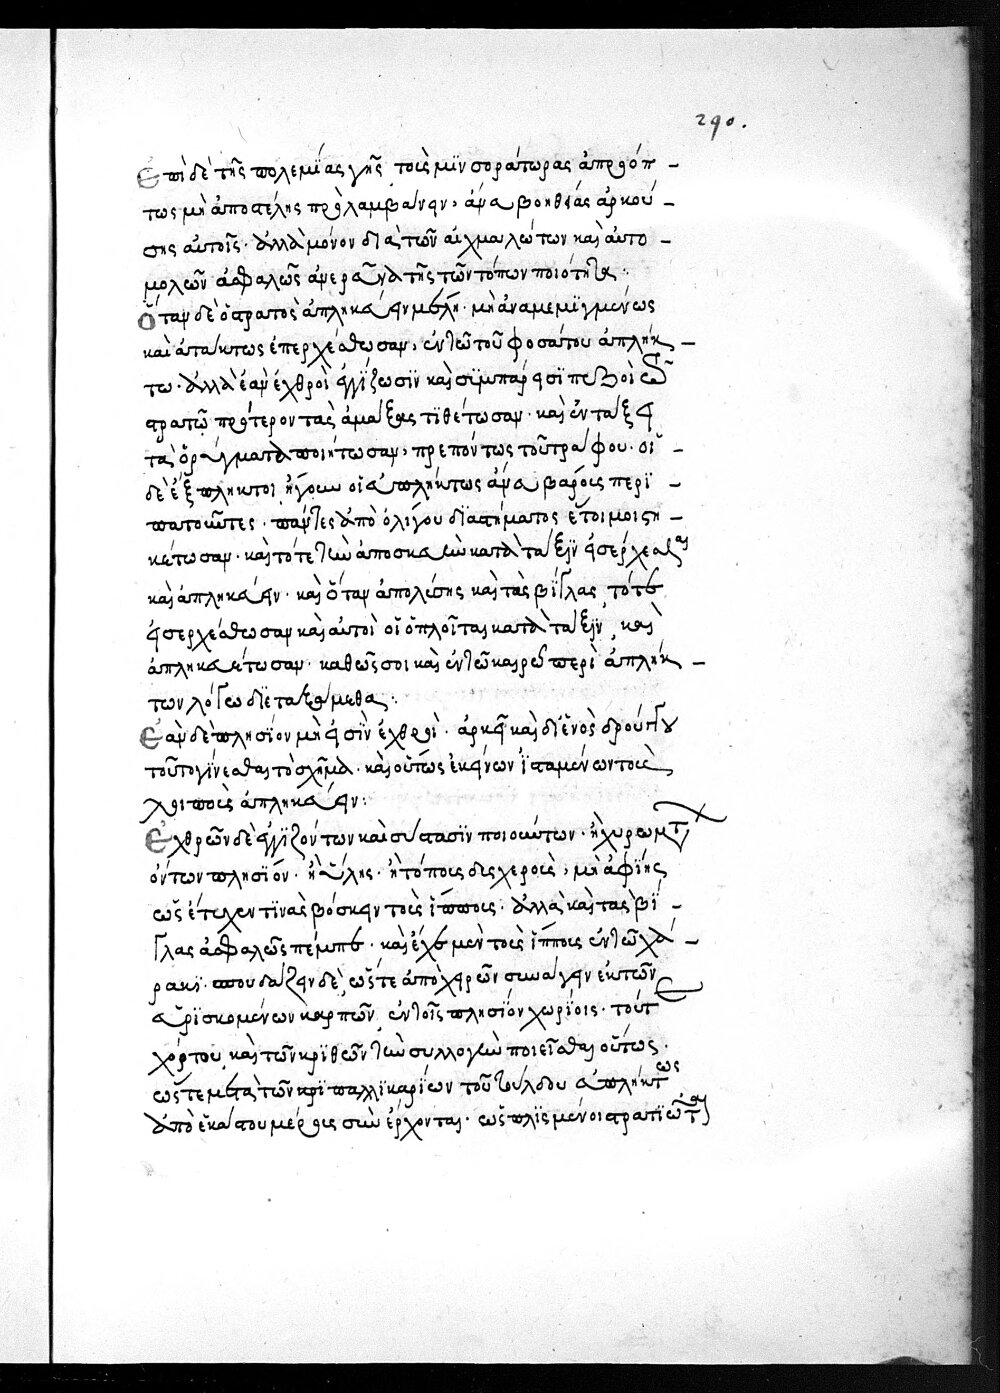 290.
Ἐπὶ δὲ τῆς πολεμίας γῆς τοὺς μινσοράτωρας ἀπρόοπ –
τως μὴ ἀποστέλης προλαμβάνειν, ἄνευ βοηθείας ἀρκού –
σης αὐτοῖς. ἀλλὰ μόνον διὰ τῶν αἰχμαλώτων καὶ αὐτο –
μολῶν ἀσφαλῶς ἀνερεύνα τῆς τῶν τόπων ποιότητας.
Ὅταν δὲ ὁ στρατὸς ἀπληκεύειν μέλλη. μὴ ἀναμεμϊγμένως
καὶ ἀτάκτως ἐπερχέσθωσαν, ἐν τῶ τοῦ φοσάτου ἀπλήκ –
τω. ἀλλὰ ἐὰν ἐχθροὶ ἐγγΐζωσϊν καὶ συμπάρεισϊ πεζοὶ τῶ
στρατῶ πρότερον τὰς ἁμάξας τϊθέτωσαν. καὶ ἐν τάξει
τὰ ὀρύγματα ποιήτωσαν, πρεπόντως τοῦ τράφου. οἱ –
δὲ ἔξπληκτοι ἤγουν οἱ εὐπλήκτως ἄνευ βάρους περϊ –
πατοῦντες. πάντες ἀπὸ ὀλίγου διαστήματος ἕτοιμοι στη –
κέτωσαν. καὶ τότε τὴν ἀποσκευὴν κατὰ τάξϊν εἰσέρχεσθαι
καὶ ἀπληκεύειν. καὶ ὅταν ἀπολύσης καὶ τὰς βΐγλας τότε
εἰσερχέσθωσαν καὶ αὐτοὶ οἱ ὁπλῖται κατὰ τάξϊν, καὶ
ἀπληκευέτωσαν. καθὼς σοι καὶ ἐν τῶ καιρῶ περὶ ἀπλήκ –
των λόγω διεταξάμεθα.
Ἐὰν δὲ πλησίον μὴ εἰσὶν ἐχθροὶ. ἀρκεῖ καὶ δι' ἑνὸς δρούγγου
τοῦτο γίνεσθαι τὸ σχῆμα. καὶ οὕτως ἐκείνων ἱσταμένων τοὺς
λοιποὺς ἀπληκεύειν:
Ἐχθρῶν δὲ ἐγγϊζόντων καὶ σύστασϊν ποιούντων. ἢ ὀχυρωμάτων
ὄντων πλησΐον. ἢ ὕλης. ἢ τόπους δυσχεροὺς, μὴ ἀφίης
ὡς ἔτυχεν τϊνὰς βόσκειν τοὺς ἵππους. ἀλλὰ καὶ τὰς βΐ –
γλας ἀσφαλῶς πέμπε. καὶ ἔχε μὲν τοὺς ἵππους ἐν τῶ χά –
ρακϊ. σπουδάζειν δὲ ὥστε ἀπὸ χειρῶν συνάγειν ἐκ τῶν
εὑρϊσκομένων καρπῶν, ἐν τοῖς πλησΐον χωρίοις. τοῦ τε
χόρτου καὶ τῶν κρϊθῶν τὴν συλλογὴν ποιεῖσθαι οὕτως.
ὥστε μετὰ τῶν παλλϊκαρίων τοῦ τούλδου εὐπλήκτως
ἀπὸ ἑκάστου μέρους συνέρχονται. ὡπλϊσμένοι στρατϊῶται